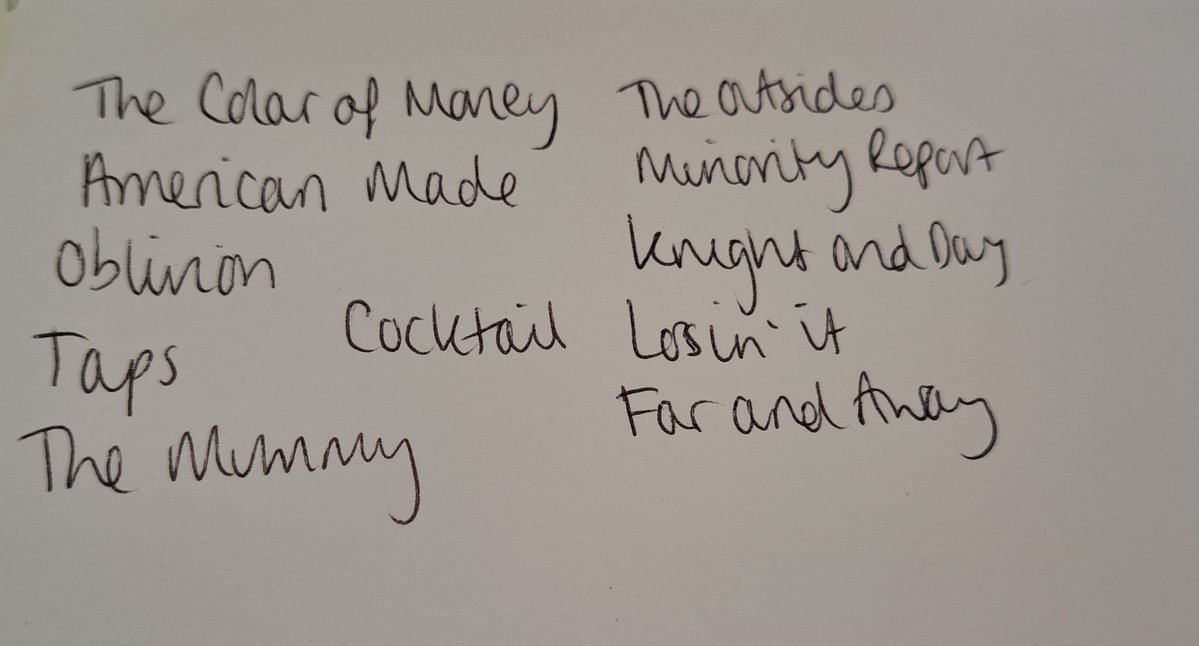 The Color of Money
American Made
Oblivion
Taps
The Mummy
Cocktail
The Outsides
Minority Report
Knight and Day
Losin' it
Far and Away